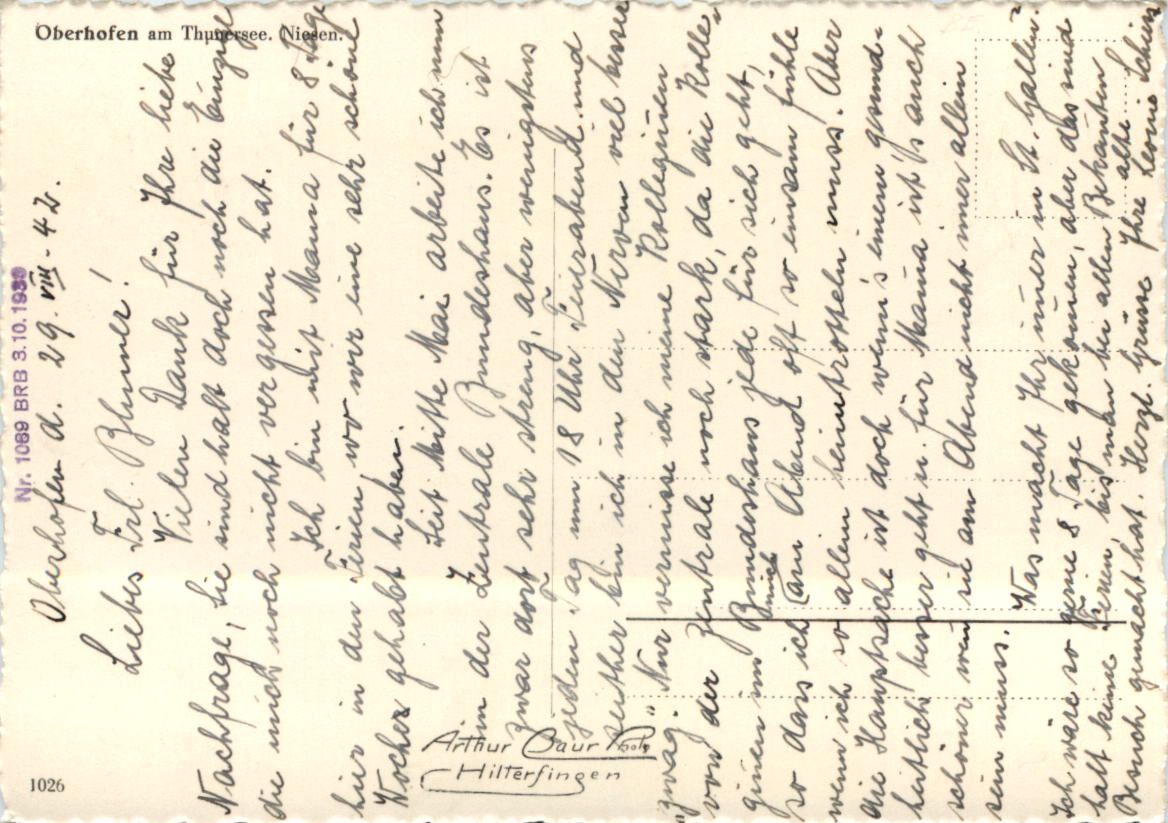 Oberhofen am Thunersee. Niesen.
Nr. 1089 BRB 3.10.1939
Oberhofen d. 29. VIII. 42.
Liebes Frl. Blumer!
Vielen Dank für Ihre liebe
Nachfrage, Sie sind halt doch noch die Einzige
die mich noch nicht vergessen hat.
Ich bin mit Mama für 8 Tage
hier in den Ferien, wo wir eine sehr schöne
Woche gehabt haben.
Seit Mitte Mai arbeite ich nun
in der Zentrale Bundeshaus. Es ist
zwar dort sehr streng, aber wenigstens
jeden Tag um 18 Uhr Feierabend und
seither bin ich in den Nerven viel besser
"zwäg". Nur vermisse ich meine Kolleginnen
von der Zentrale noch stark, da die Kolle-
ginnen im Bundeshaus jede für sich geht,
so dass ich mich am Abend oft so einsam fühle
wenn ich so allein heimtrotteln muss. Aber
die Hauptsache ist doch wenn's einem gesund-
heitlich besser geht u. für Mama ist's auch
schöner wenn sie am Abend nicht immer allein
sein muss.
Was macht Ihr immer in St. Gallen?
Ich wäre so gerne 8 Tage gekommen, aber das sind
halt keine Ferien, bis man bei allen Bekannten
Besuch gemacht hat. Herzl. Grüsse Ihre alte
Leonie
Arthur Baur Photo
Hilterfingen
1026